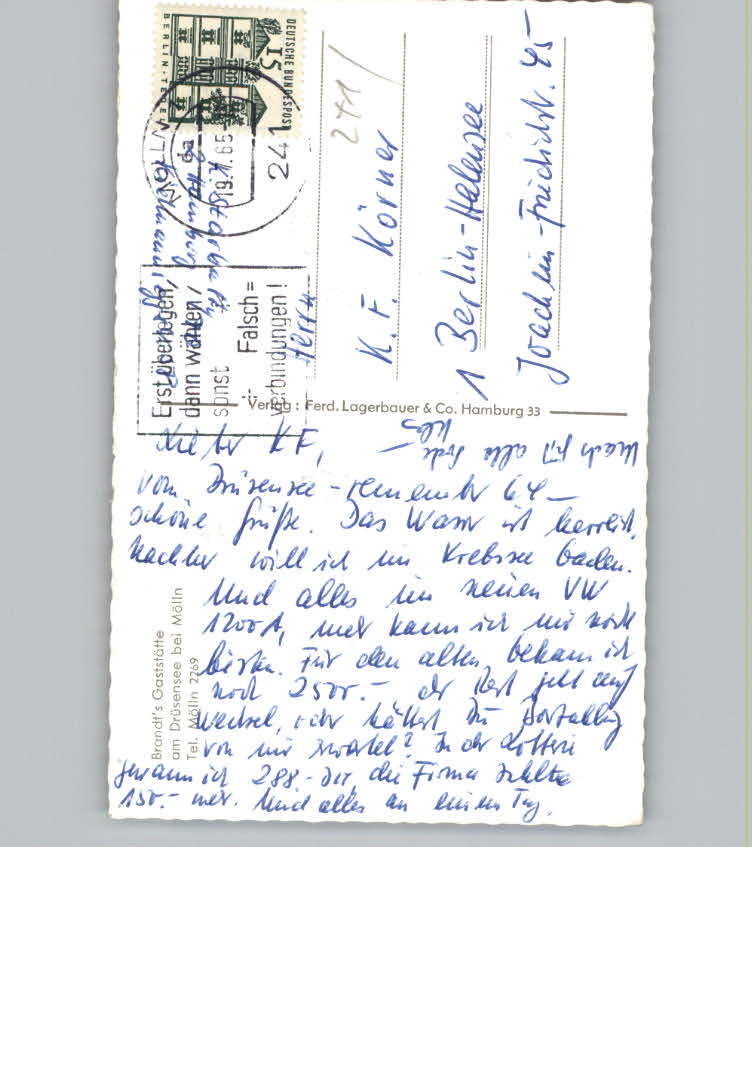 DEUTSCHE BUNDESPOST
15
BERLIN-TEGEL
MÖLLN
da
19.7.65
241
Erst überlegen,
dann wählen /
sonst
Falsch=
verbindungen!
2 Hamburg
241
Herrn
K. F. Körner
1 Berlin-Halensee
Joachim-Friedrichstr. 45
Verlag: Ferd. Lagerbauer & Co. Hamburg 33
Brandt's Gaststätte
am Drüsensee bei Mölln
Tel. Mölln 2269
Lieber K F,
vom Drüsensee - remember 64 -
schöne Grüße. Das Wasser ist herrlich,
nachher will ich im Krebssee baden.
Und alles im neuen VW
1200A, mehr kann ich mir nicht
leisten. Für den alten bekam ich
noch 2500.- der Rest geht auf
Wechsel, oder hättest Du Barzahlung
von mir erwartet? In der Lotterie
gewann ich 288.- die Firma zahlte
150.- mehr. Und alles an einem Tag.
Mach's gut alte